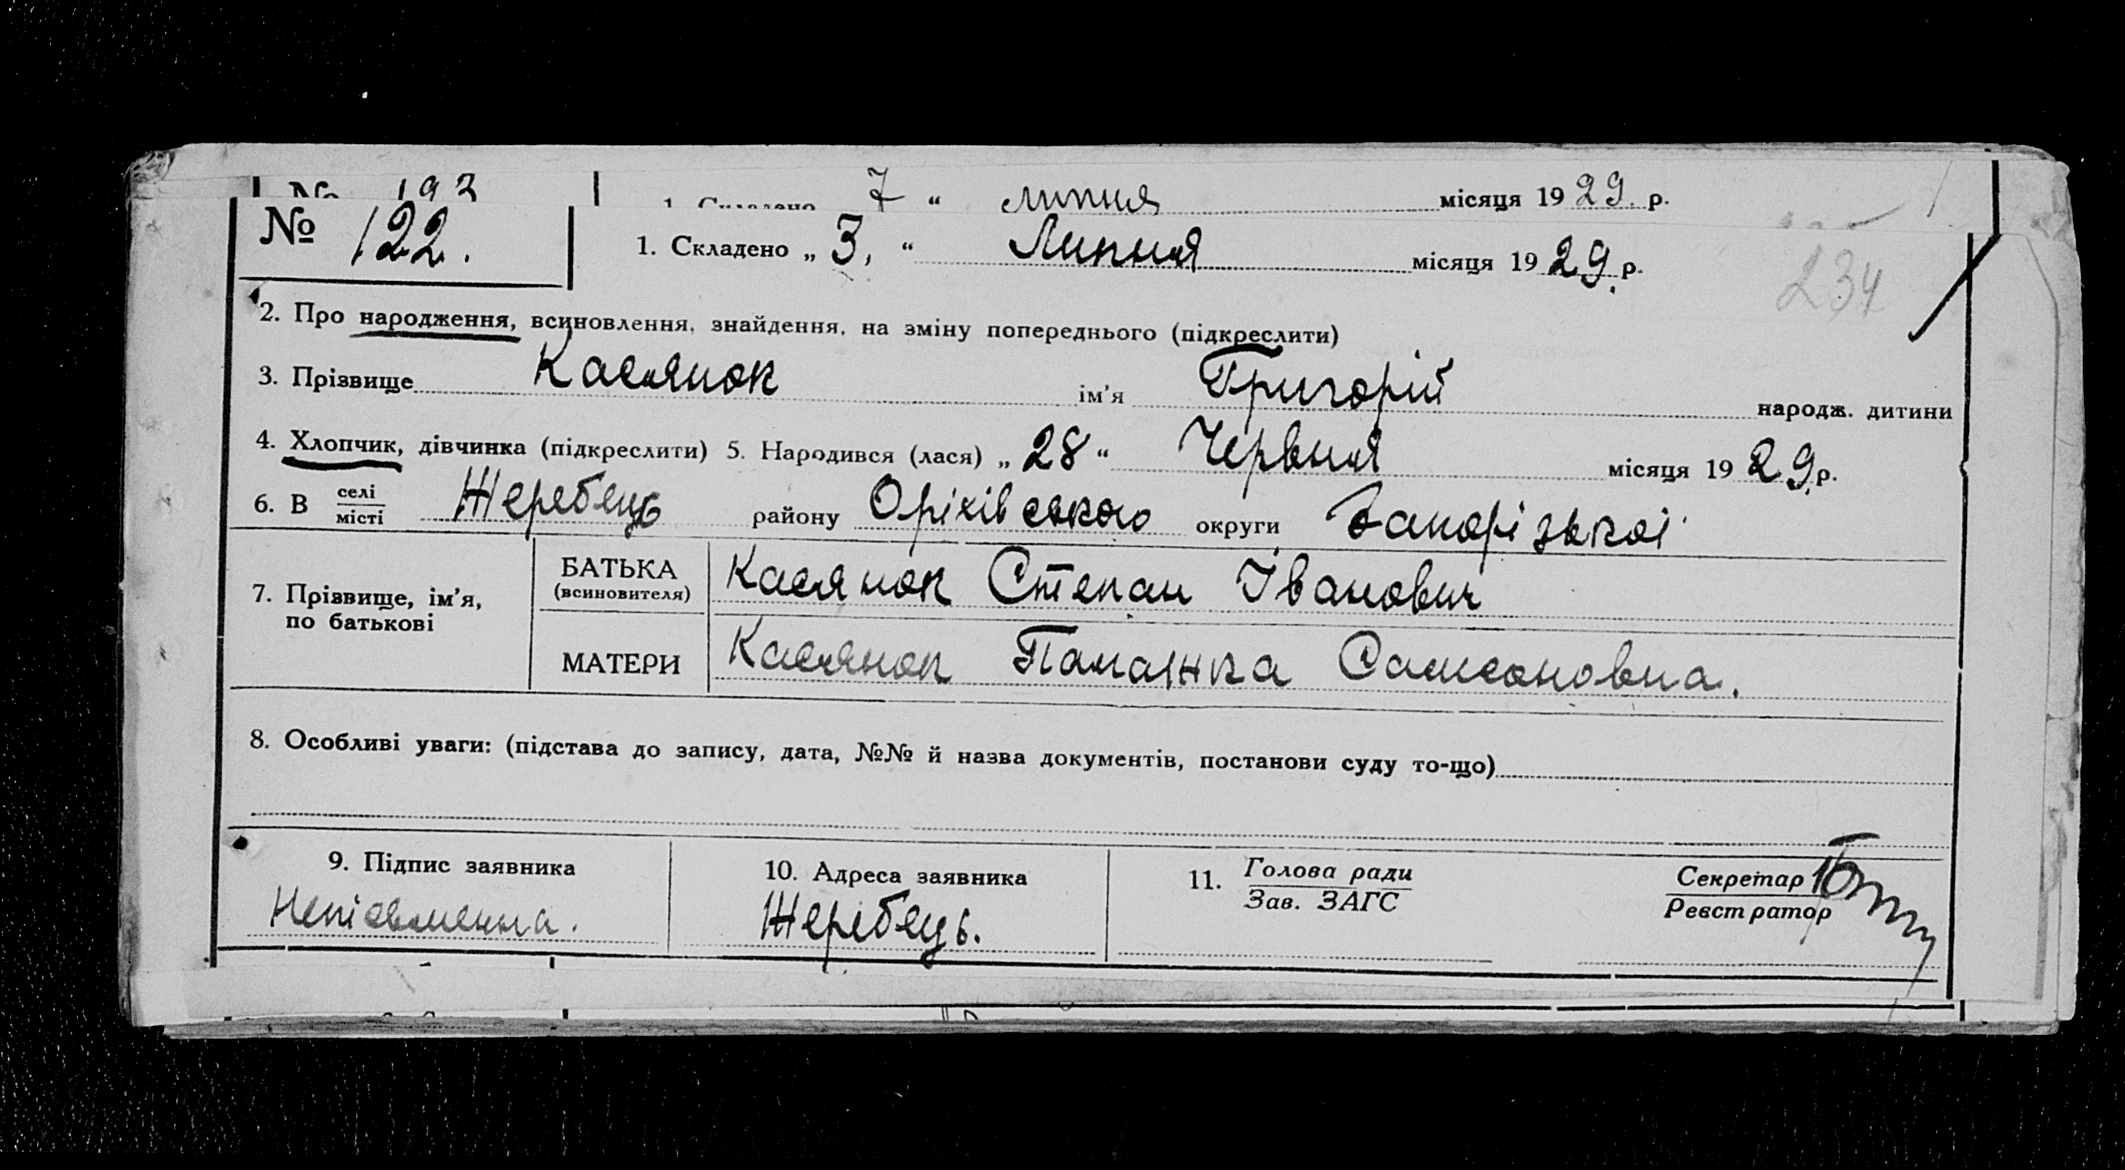 № 193 1. Складено 7 “ липня місяця 1929. р.
№ 122. 1. Складено „ 3. “ Липня місяця 1929. р.
234
2. Про народження, всиновлення, знайдення, на зміну попереднього (підкреслити)
3. Прізвище Касянок ім'я Григорій народж. дитини
4. Хлопчик, дівчинка (підкреслити) 5. Народився (лася) „ 28 “ Червня місяця 1929. р.
6. В селі місті Жеребець району Оріхівського округи Запорізької
7. Прізвище, ім'я, по батькові
БАТЬКА (всиновителя) Касянок Степан Іванович
МАТЕРИ Касянок Палажка Самсоновна.
8. Особливі уваги: (підстава до запису, дата, №№ й назва документів, постанови суду то-що)
9. Підпис заявника 10. Адреса заявника 11. Голова ради Зав. ЗАГС Секретар Реєстратор
Жеребець.